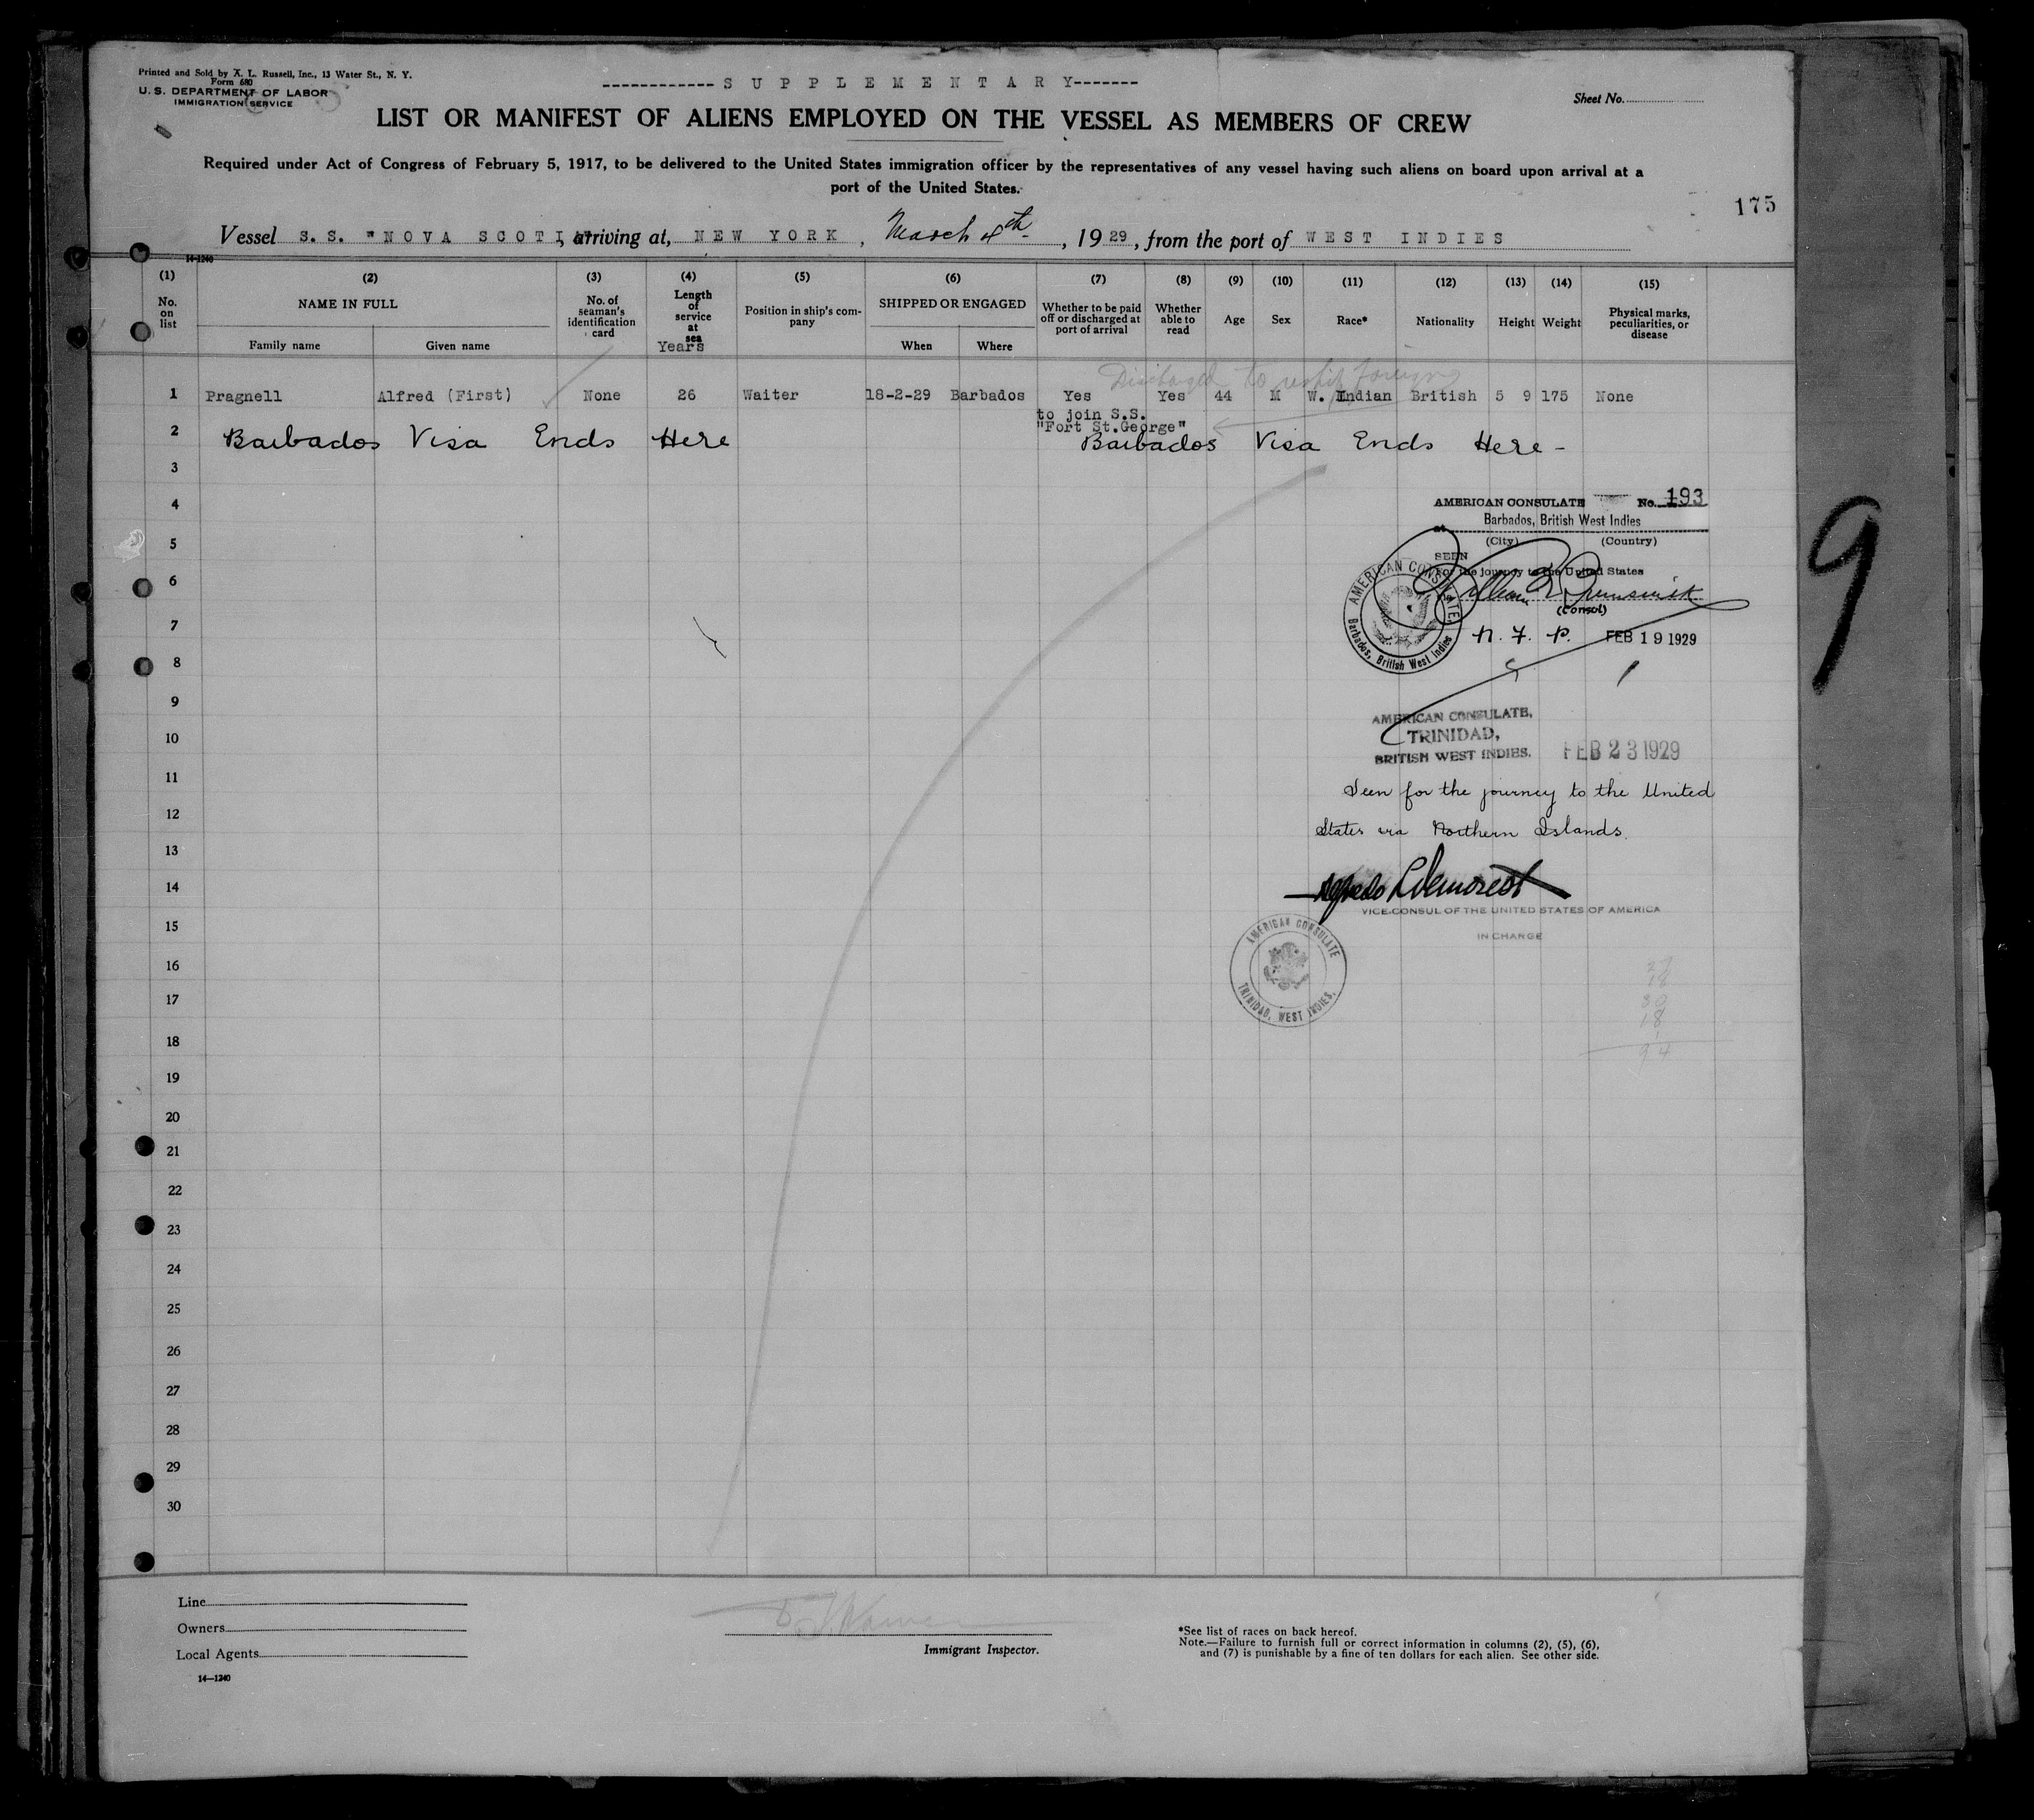 Printed and Sold by A. L. Russell, Inc., 13 Water St., N. Y.
Form 680
U. S. DEPARTMENT OF LABOR
IMMIGRATION SERVICE
------------SUPPLEMENTARY-------
Sheet No.
LIST OR MANIFEST OF ALIENS EMPLOYED ON THE VESSEL AS MEMBERS OF CREW
Required under Act of Congress of February 5, 1917, to be delivered to the United States immigration officer by the representatives of any vessel having such aliens on board upon arrival at a
port of the United States.
175
Vessel S.S. "NOVA SCOTIA", arriving at, NEW YORK, March 4th, 1929, from the port of WEST INDIES
14-1240
(1) (2) (3) (4) (5) (6) (7) (8) (9) (10) (11) (12) (13) (14) (15)
No. on list
NAME IN FULL
Family name Given name
No. of seaman's identification card
Length of service at sea
Years
Position in ship's company
SHIPPED OR ENGAGED
When Where
Whether to be paid off or discharged at port of arrival
Whether able to read
Age Sex Race* Nationality Height Weight
Physical marks, peculiarities, or disease
Discharged to reship foreign
1 Pragnell Alfred (First) None 26 Waiter 18-2-29 Barbados Yes Yes 44 M W. Indian British 5 9 175 None
to join S.S.
"Fort St.George"
2 Barbados Visa Ends Here Barbados Visa Ends Here -
3
4
AMERICAN CONSULATE No. 193
at Barbados, British West Indies
5
(City) (Country)
SEEN
6
For the journey to the United States
(Consol)
AMERICAN CONSULATE, Barbados, British West Indies
7
n. f. p. FEB 19 1929
8
9
AMERICAN CONSULATE,
10
TRINIDAD,
BRITISH WEST INDIES. FEB 23 1929
11
Seen for the journey to the United
12
States via Northern Islands.
13
14
Alfredo L. Demorest
VICE-CONSUL OF THE UNITED STATES OF AMERICA
15
IN CHARGE
AMERICAN CONSULATE TRINIDAD, WEST INDIES.
16
17
30
18
18
94
19
20
21
22
23
24
25
26
27
28
29
30
9
Line
Owners
Local Agents
14—1240
Immigrant Inspector.
*See list of races on back hereof.
Note.—Failure to furnish full or correct information in columns (2), (5), (6),
and (7) is punishable by a fine of ten dollars for each alien. See other side.